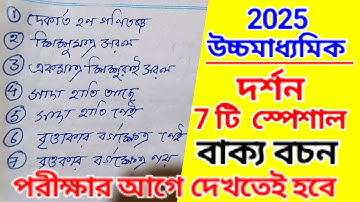 ① দেকার্ত হন গণিতজ্ঞ
② শিশুমাত্র সরল
③ একমাত্র শিশুরাই সরল
④ সাদা হাতি আছে
⑤ সাদা হাতি নেই
⑥ বৃত্তাকার বর্গক্ষেত্র নেই
⑦ বৃত্তাকার বর্গক্ষেত্র নয়
2025
উচ্চমাধ্যমিক
দর্শন
7 টি স্পেশাল
বাক্য বচন
পরীক্ষার আগে দেখতেই হবে